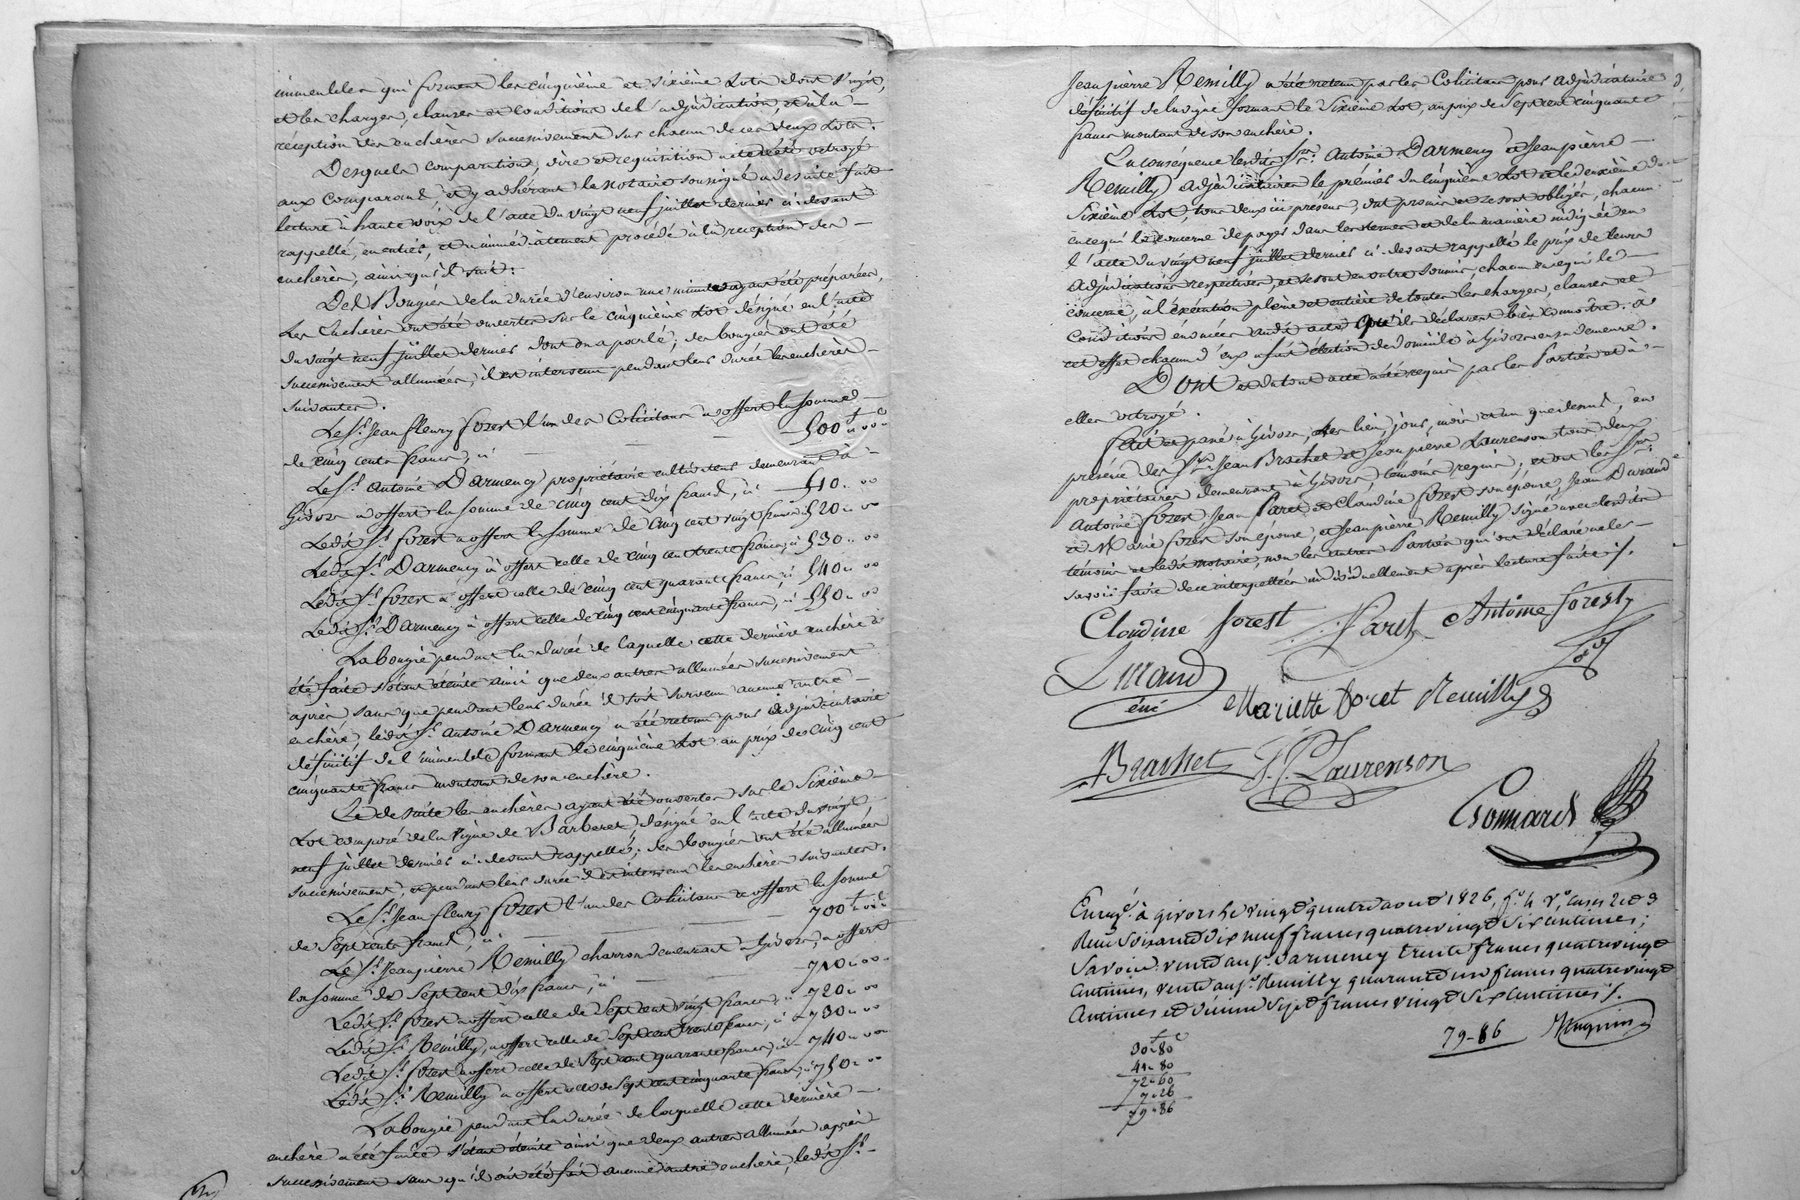 immeubles qui forment les cinquième et sixième Lots dont s'agit,
et les charges, clauses et conditions de l'adjudication, et à la
réception des enchères successivement sur chacun de ces deux Lots.
Desquels comparution, dire et requisition acte a été octroyé
aux comparans, et y adhérant le Notaire soussigné a de suite fait
lecture à haute voix de l'acte du vingt neuf juillet dernier ci-devant
rappellé, en entier, et a immédiatement procédé à la réception des
enchères, ainsi qu'il suit:
Des Bougies de la durée d'environ une minute ayant été préparées,
Les Enchères ont été ouvertes sur le cinquième Lot désigné en l'acte
du vingt neuf juillet dernier dont on a parlé; des bougies ont été
successivement allumées, il est intervenu pendant leur durée les enchères
suivantes.
Le Sr. Jean fleury forest l'un des Colicitans a offert la somme
de cinq cents francs, ci 500 f „ 00 c
Le Sr. Antoine Darmency propriétaire cultivateur demeurant à
Givors a offert la somme de cinq cent dix francs, ci 510 „ 00
Ledit Sr. forest a offert la somme de cinq cent vingt francs ci 520 „ 00
Ledit Sr. Darmency a offert celle de cinq cent trente francs, ci 530 „ 00
Ledit Sr. forest a offert celle de cinq cent quarante francs, ci 540 „ 00
Ledit Sr. Darmency a offert celle de cinq cent cinquante francs, ci 550 „ 00
La bougie pendant la durée de laquelle cette dernière enchère a
été faite s'étant éteinte ainsi que deux autres allumées successivement
après sans que pendant leur durée il soit survenu aucune autre
enchère, ledit Sr. Antoine Darmency a été retenu pour adjudicataire
définitif de l'immeuble formant le cinquième Lot au prix de cinq cent
cinquante francs montant de son enchère.
Et de suite les enchères ayant été ouvertes sur le Sixième
Lot composé de la Vigne de Barberet désigné en l'acte du vingt
neuf juillet dernier ci-devant rappellé; des bougies ont été allumées
successivement, et pendant leur durée il est intervenu les enchères suivantes.
Le Sr. Jean fleury forest l'un des Colicitans a offert la somme
de Sept cents francs, ci 700 f „ 00 c
Le Sr. Jeanpierre Remilly charron demeurant à Givors, a offert
la somme de Sept cent dix francs, ci 710 „ 00
Ledit Sr. forest a offert celle de Sept cent vingt francs, ci 720 „ 00
Ledit Sr. Remilly, a offert celle de Sept cent trente francs, ci 730 „ 00
Ledit Sr. forest a offert celle de Sept cent quarante francs, ci 740 „ 00
Ledit Sr. Remilly a offert celle de Sept cent cinquante francs, ci 750 „ 00
La bougie pendant la durée de laquelle cette dernière
enchère a été faite s'étant éteinte ainsi que deux autres allumées après
successivement sans qu'il ait été fait aucune autre enchère, ledit Sr.
Jeanpierre Remilly a été retenu par les Colicitans pour adjudicataire
définitif de la vigne formant le Sixième Lot, au prix de Sept cent cinquante
francs montant de son enchère.
En conséquence lesdits Srs. Antoine Darmency et Jeanpierre
Remilly adjudicataires le premier du cinquième Lot et le deuxième du
Sixième Lot, tous deux ici présens, ont promis et se sont obligés, chacun
en ce qui le concerne de payer dans les termes et de la manière rédigée en
l'acte du vingt neuf juillet dernier ci-devant rappellé le prix de leurs
adjudications respectives, et se sont en outre soumis, chacun en ce qui le
concerne, à l'exécution pleine et entière de toutes les charges, clauses et
conditions énoncées audit acte qu'ils déclarent bien connaître. à
cet effet chacun d'eux a fait élection de domicile à Givors en sa demeure.
Dont et du tout acte a été requis par les Parties et à
elles octroyé.
Fait et passé à Givors, les lieu, jour, mois et an que dessus, en
présence des Srs. Jean Brachet et Jeanpierre Laurenson tous deux
propriétaires demeurant à Givors, témoins requis, et ont les Srs.
Antoine forest, Jean Paret, et Claudine forest son épouse, Jean Durand
et Marie forest son épouse, et Jeanpierre Remilly signé avec lesdits
témoins et ledit notaire, non les autres Parties qui ont déclaré ne le
savoir faire de ce interpellées individuellement après lecture faite ./.
Claudine forest Paret Antoine forest
Durand
Mariette foret Remilly
Brachet J. P. Laurenson
Bonnard
Enregé. à givors le vingt quatre aout 1826, fo. 4 Vo. cases 2 et 3
Reçu Soixante dix neuf francs quatre vingt Six centimes;
Savoir: vente au Sr. Darmency trente francs quatre vingt
centimes, vente au Sr. Remilly quarante un francs quatre vingt
centimes et décime sept francs vingt Six centimes ./.
79-86
30-80
41-80
72-60
7-26
79-86